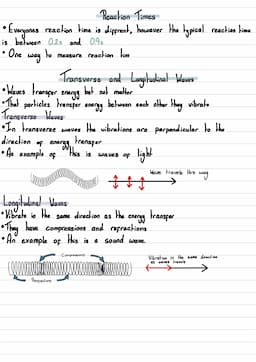 Reaction Times
• Everyones reaction time is diffrent, however the typical reaction time
is between 0.2s and 0.9s
• One way to measure reaction tim
Transverse and Longitudinal Waves
• Waves transfer energy but not matter
• That particles transfer energy between each other they vibrate
Transverse Waves
• In transverse waves the vibrations are perpendicular to the
direction of energy transfer
• An example of this is waves of light
Wave travels this way
Longitudinal Waves
• Vibrate in the same direction as the energy transfer
• They have compressions and rarefractions
• An example of this is a sound wave.
Vibration in the same direction
as wave travels